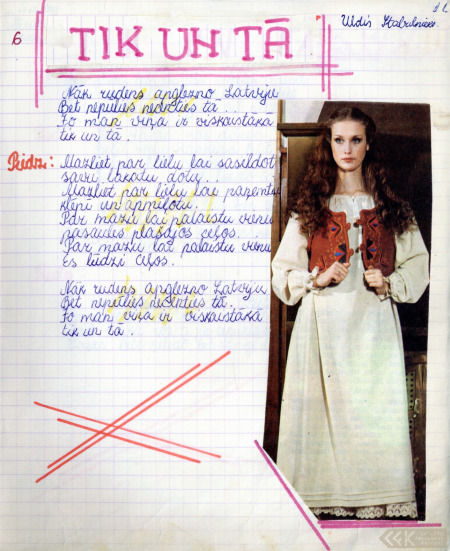 6
TIK UN TĀ
Uldis Stabulnieks
Nāk rudens apgleznot Latviju
Bet nepūlies necenties tā...
Jo man viņa ir visskaistākā
tik un tā.
Piedz: Mazliet par lielu lai sasildot
savu lakatu dotu...
Mazliet par lielu lai paņemtu
klēpī un apmīļotu.
Par mazu lai palaistu vienu
pasaules plašajos ceļos...
Par mazu lai palaistu vienu
es lūdzi ceļos.
Nāk rudens apgleznot Latviju
Bet nepūlies necenties tā...
Jo man viņa ir visskaistākā
tik un tā.